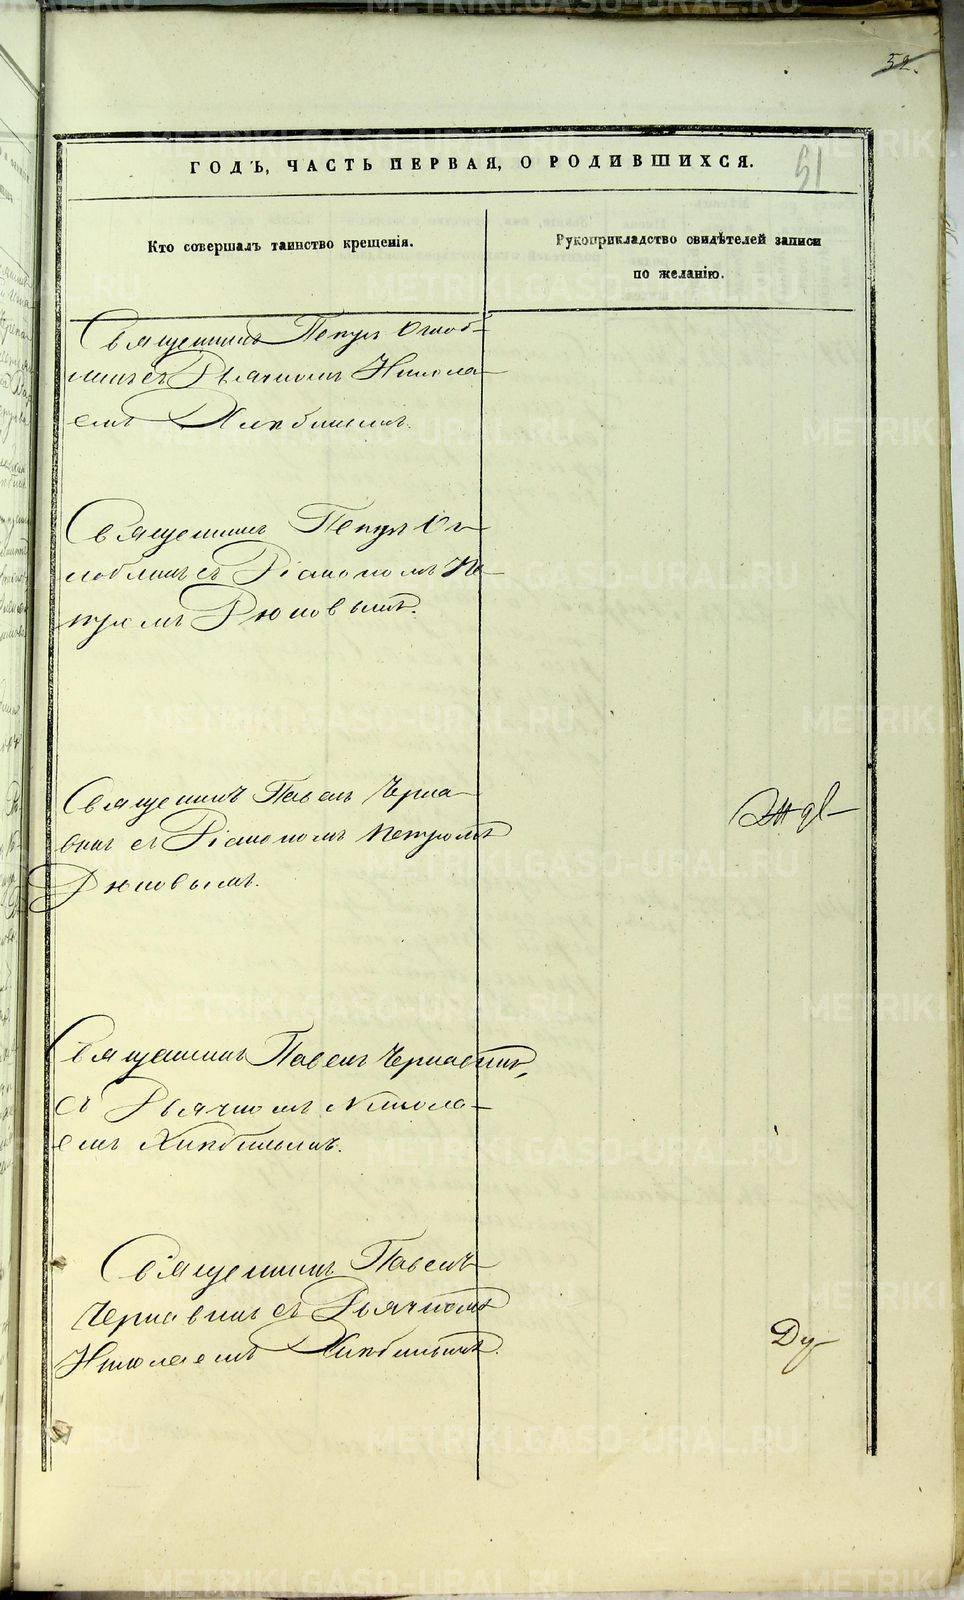 52.
ГОДЪ, ЧАСТЬ ПЕРВАЯ, О РОДИВШИХСЯ.
51
Кто совершалъ таинство крещенія.
Рукоприкладство свидѣтелей записи
по желанію.
Священникъ Петръ Оглоб-
линъ съ Дьячкомъ Никола-
емъ
Священникъ Петръ Ог-
лоблинъ съ Діакономъ Пе-
тромъ Дюковымъ.
Священникъ Павелъ Черна-
винъ съ Діакономъ Петромъ
Дюковымъ.
Священникъ Павелъ Чернавинъ,
съ Дьячкомъ Никола-
емъ
Священникъ Павелъ
Чернавинъ съ Дьячкомъ
Николаемъ
METRIKI.GASO-URAL.RU